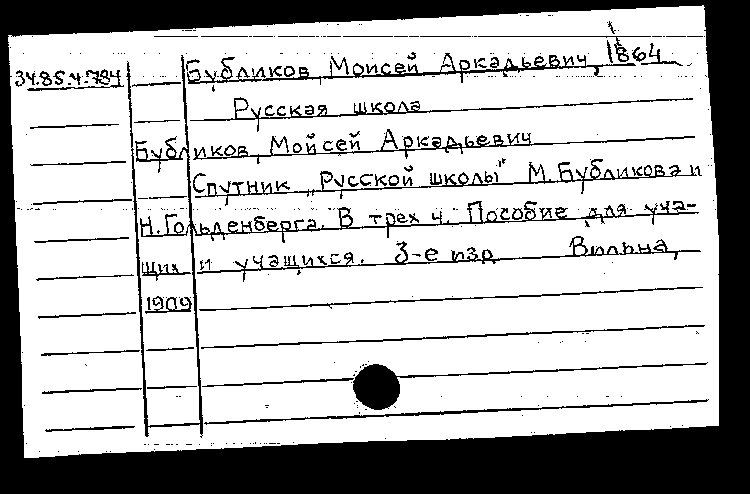 34.85.4.784 Бубликов, Моисей Аркадьевич, 1864
Русская школа
Бубликов, Мойсей Аркадьевич
Спутник „Русской школы" М. Бубликова и
Н. Гольденберга. В трех ч. Пособие для уча-
щих и учащихся. 3-е изд Вильна,
1909